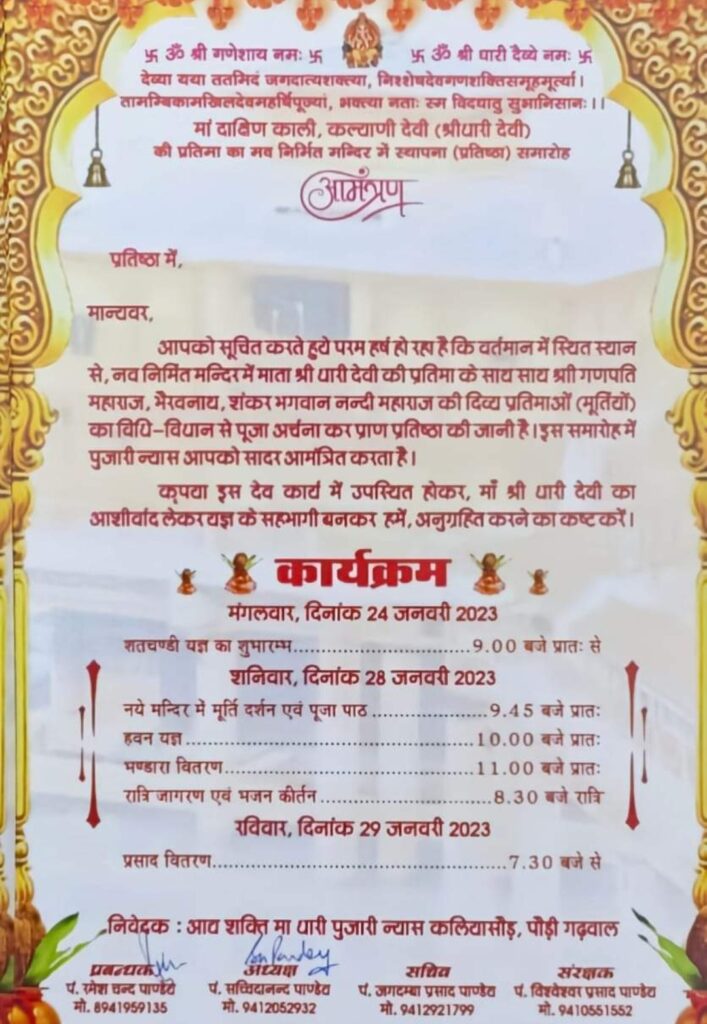 卐 ॐ श्री गणेशाय नमः 卐 卐 ॐ श्री धारी दैव्ये नमः 卐
देव्या यया ततमिदं जगदात्यशक्त्या, निश्शेषदेवगणशक्तिसमूहमूर्त्या।
तामम्बिकामखिलदेवमहर्षिपूज्यां, भक्त्या नताः स्म विदधातु सुभानिसानः।।
मां दाक्षिण काली, कल्याणी देवी (श्रीधारी देवी)
की प्रतिमा का मव निर्मित मन्दिर में स्थापना (प्रतिष्ठा) समारोह
आमंत्रण
प्रतिष्ठा में,
मान्यवर,
आपको सूचित करते हुये परम हर्ष हो रहा है कि वर्तमान में स्थित स्थान
से, नव निर्मित मन्दिर में माता श्री धारी देवी की प्रतिमा के साथ साथ श्री गणपति
महाराज, भैरवनाथ, शंकर भगवान नन्दी महाराज की दिव्य प्रतिमाओं (मूर्तियों)
का विधि-विधान से पूजा अर्चना कर प्राण प्रतिष्ठा की जानी है। इस समारोह में
पुजारी न्यास आपको सादर आमंत्रित करता है।
कृपया इस देव कार्य में उपस्थित होकर, माँ श्री धारी देवी का
आशीर्वाद लेकर यज्ञ के सहभागी बनकर हमें, अनुग्रहित करने का कष्ट करें।
कार्यक्रम
मंगलवार, दिनांक 24 जनवरी 2023
शतचण्डी यज्ञ का शुभारम्भ...............................9.00 बजे प्रातः से
शनिवार, दिनांक 28 जनवरी 2023
नये मन्दिर में मूर्ति दर्शन एवं पूजा पाठ ....................9.45 बजे प्रातः
हवन यज्ञ .................................................10.00 बजे प्रातः
भण्डारा वितरण...........................................11.00 बजे प्रातः
रात्रि जागरण एवं भजन कीर्तन ..............................8.30 बजे रात्रि
रविवार, दिनांक 29 जनवरी 2023
प्रसाद वितरण....................................................7.30 बजे से
निवेदक : आद्य शक्ति मा धारी पुजारी न्यास कलियासौड़, पौड़ी गढ़वाल
प्रबन्धक अध्यक्ष सचिव संरक्षक
पं. रमेश चन्द पाण्डेय पं. सच्चिदानन्द पाण्डेय पं. जगदम्बा प्रसाद पाण्डेय पं. विश्वेश्वर प्रसाद पाण्डेय
मो. 8941959135 मो. 9412052932 मो. 9412921799 मो. 9410551552